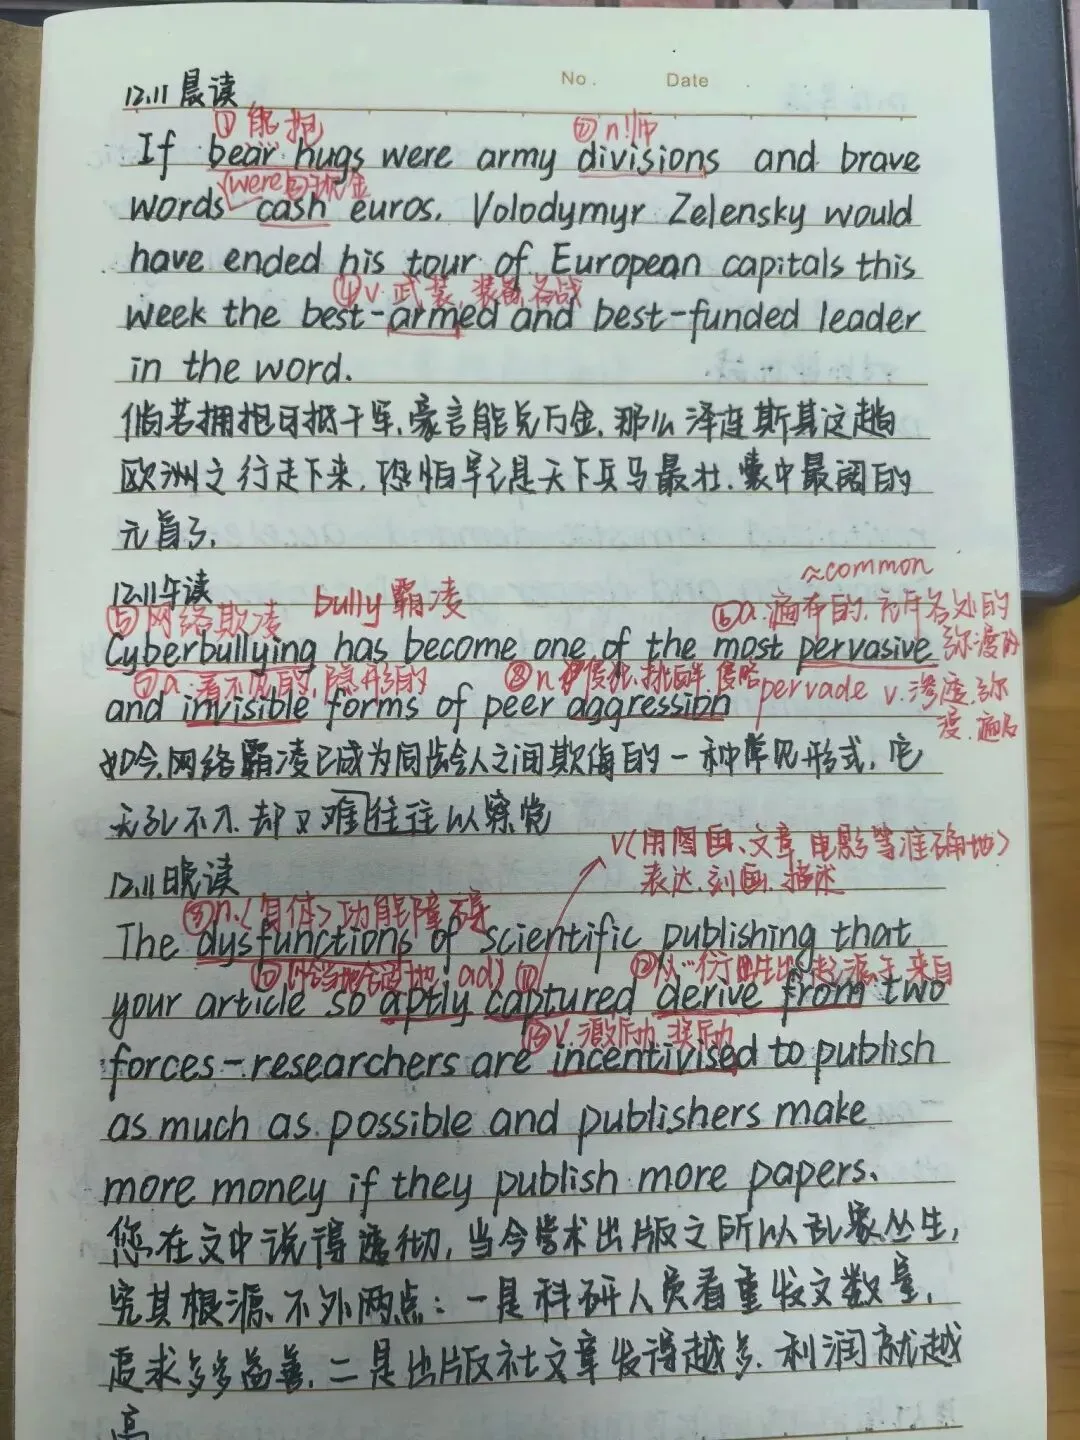 No. Date
12.11 晨读
① 熊抱 ② n.师
If bear hugs were army divisions and brave
were
words cash euros. Volodymyr Zelensky would
have ended his tour of European capitals this
④ v. 武装, 装备, 备战
week the best-armed and best-funded leader
in the word.
倘若拥抱可抵千军,豪言能兑万金,那么泽连斯基这趟
欧洲之行走下来,恐怕早已是天下兵马最壮,囊中最阔的
元首了.
12.11午读 ≈common
⑤网络欺凌 bully 霸凌 ⑥a.遍布的.充斥各处的
Cyberbullying has become one of the most pervasive 弥漫的
⑦a.看不见的,隐形的 ⑧n. 侵犯,挑衅 侵略 pervade v.渗透.弥
and invisible forms of peer aggression 漫.遍及
如今,网络霸凌已成为同龄人之间欺侮的一种常见形式,它
无孔不入,却又难往往以察觉
v(用图画、文章,电影等准确地)
12.11晚读 表达.刻画.描述
n.<身体>功能障碍
The dysfunctions of scientific publishing that
⑩恰当地 合适地 ad) ⑪ ⑫从…衍生出 起源于 来自
your article so aptly captured derive from two
⑬v.激励.奖励
forces-researchers are incentivised to publish
as much as possible and publishers make
more money if they publish more papers.
您在文中说得透彻,当今学术出版之所以乱象丛生,
究其根源,不外两点:一是科研人员看重发文数量,
追求多多益善,二是出版社文章发得越多.利润就越
高